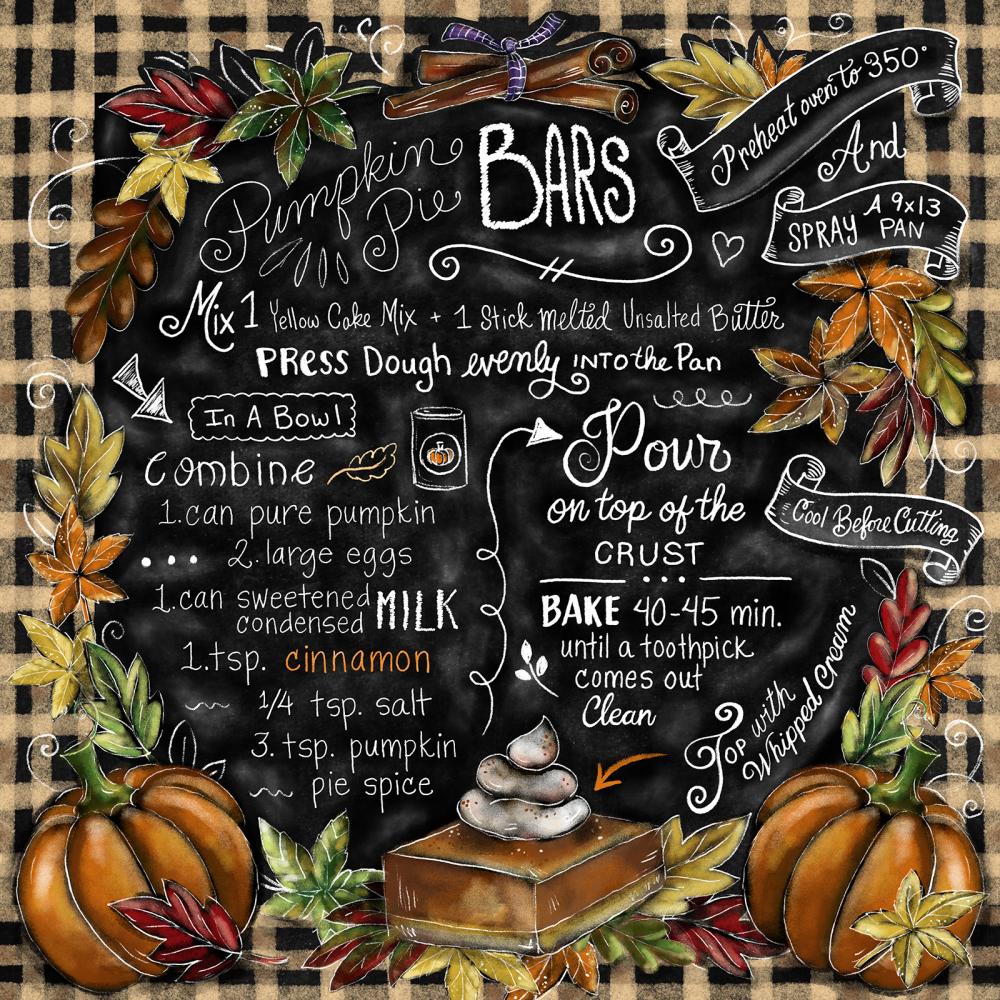 Pumpkin
Pie BARS
Preheat oven to 350°
And
SPRAY A 9x13
PAN
Mix 1 Yellow Cake Mix + 1 Stick melted Unsalted Butter
PRESS Dough evenly INTO the Pan
In A Bowl
Combine
1. can pure pumpkin
2. large eggs
1. can sweetened
condensed MILK
1. tsp. cinnamon
1/4 tsp. salt
3. tsp. pumpkin
pie spice
Pour
on top of the
CRUST
BAKE 40-45 min.
until a toothpick
comes out
Clean
Cool Before Cutting
Top with
Whipped Cream